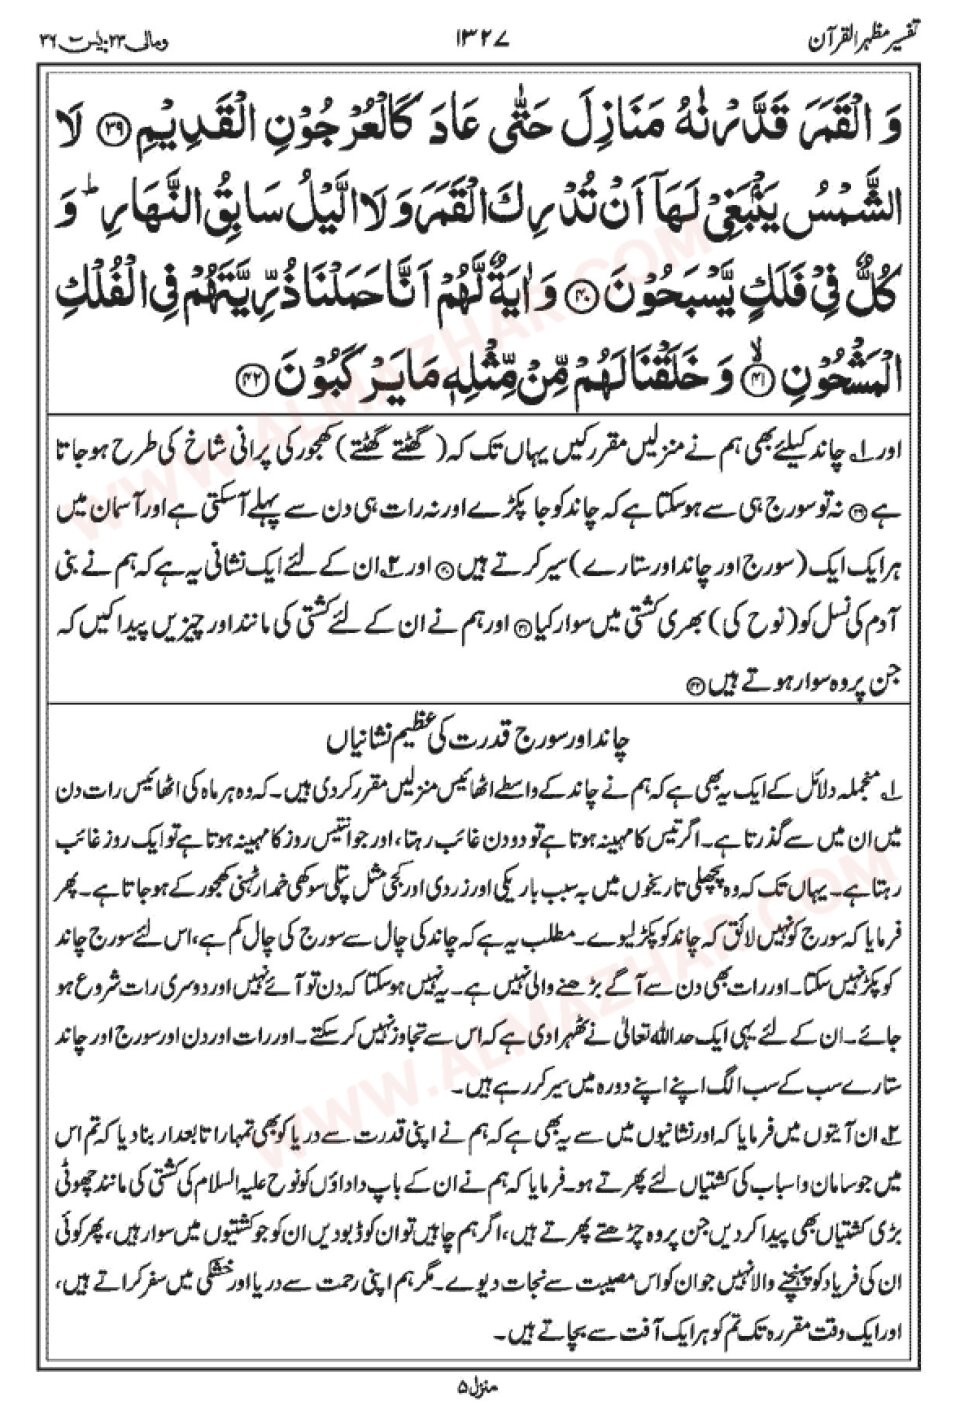 تفسیر مظہر القرآن ۱۳۲۷ ومالی ۲۳، یٰست ۳۶
وَ الْقَمَرَ قَدَّرْنٰهُ مَنَازِلَ حَتّٰى عَادَ كَالْعُرْجُوْنِ الْقَدِيْمِ ﴿۳۹﴾ لَا
الشَّمْسُ يَنْۢبَغِيْ لَهَاۤ اَنْ تُدْرِكَ الْقَمَرَ وَ لَا الَّيْلُ سَابِقُ النَّهَارِ ؕ وَ
كُلٌّ فِيْ فَلَكٍ يَّسْبَحُوْنَ ﴿۴۰﴾ وَ اٰيَةٌ لَّهُمْ اَنَّا حَمَلْنَا ذُرِّيَّتَهُمْ فِي الْفُلْكِ
الْمَشْحُوْنِ ﴿۴۱﴾ۙ وَ خَلَقْنَا لَهُمْ مِّنْ مِّثْلِهٖ مَا يَرْكَبُوْنَ ﴿۴۲﴾
اور ۱؎ چاند کیلئے بھی ہم نے منزلیں مقرر کیں یہاں تک کہ (گھٹتے گھٹتے) کھجور کی پرانی شاخ کی طرح ہو جاتا
ہے ﴿۳۹﴾ نہ تو سورج ہی سے ہو سکتا ہے کہ چاند کو جا پکڑے اور نہ رات ہی دن سے پہلے آسکتی ہے اور آسمان میں
ہر ایک ایک (سورج اور چاند اور ستارے) سیر کرتے ہیں ﴿۴۰﴾ اور ۲؎ ان کے لئے ایک نشانی یہ ہے کہ ہم نے بنی
آدم کی نسل کو (نوح کی) بھری کشتی میں سوار کیا ﴿۴۱﴾ اور ہم نے ان کے لئے کشتی کی مانند اور چیزیں پیدا کیں کہ
جن پر وہ سوار ہوتے ہیں ﴿۴۲﴾
چاند اور سورج قدرت کی عظیم نشانیاں
۱؎ منجملہ دلائل کے ایک یہ بھی ہے کہ ہم نے چاند کے واسطے اٹھائیس منزلیں مقرر کر دی ہیں۔ کہ وہ ہر ماہ کی اٹھائیس رات دن
میں ان میں سے گذرتا ہے۔ اگر تیس کا مہینہ ہوتا ہے تو دو دن غائب رہتا، اور جو انتیس روز کا مہینہ ہوتا ہے تو ایک روز غائب
رہتا ہے۔ یہاں تک کہ وہ پچھلی تاریخوں میں بہ سبب باریکی اور زردی اور کجی مثل پتلی سوکھی خمدار ٹہنی کھجور کے ہو جاتا ہے۔ پھر
فرمایا کہ سورج کو نہیں لائق کہ چاند کو پکڑ لیوے۔ مطلب یہ ہے کہ چاند کی چال سے سورج کی چال کم ہے، اس لئے سورج چاند
کو پکڑ نہیں سکتا۔ اور رات بھی دن سے آگے بڑھنے والی نہیں ہے۔ یہ نہیں ہو سکتا کہ دن تو آئے نہیں اور دوسری رات شروع ہو
جائے۔ ان کے لئے یہی ایک حد اللہ تعالیٰ نے ٹھہرا دی ہے کہ اس سے تجاوز نہیں کر سکتے۔ اور رات اور دن اور سورج اور چاند
ستارے سب کے سب الگ اپنے اپنے دورہ میں سیر کر رہے ہیں۔
۲؎ ان آیتوں میں فرمایا کہ اور نشانیوں میں سے یہ بھی ہے کہ ہم نے اپنی قدرت سے دریا کو بھی تمہارا تابعدار بنا دیا کہ تم اس
میں جو سامان و اسباب کی کشتیاں لئے پھرتے ہو۔ فرمایا کہ ہم نے ان کے باپ داداؤں کو نوح علیہ السلام کی کشتی کی مانند چھوٹی
بڑی کشتیاں بھی پیدا کر دیں جن پر وہ چڑھتے پھرتے ہیں، اگر ہم چاہیں تو ان کو ڈبو دیں ان کو جو کشتیوں میں سوار ہیں، پھر کوئی
ان کی فریاد کو پہنچنے والا نہیں جو ان کو اس مصیبت سے نجات دیوے۔ مگر ہم اپنی رحمت سے دریا اور خشکی میں سفر کراتے ہیں،
اور ایک وقت مقررہ تک تم کو ہر ایک آفت سے بچاتے ہیں۔
منزل ۵
WWW.ALMAZHAR.COM
WWW.ALMAZHAR.COM